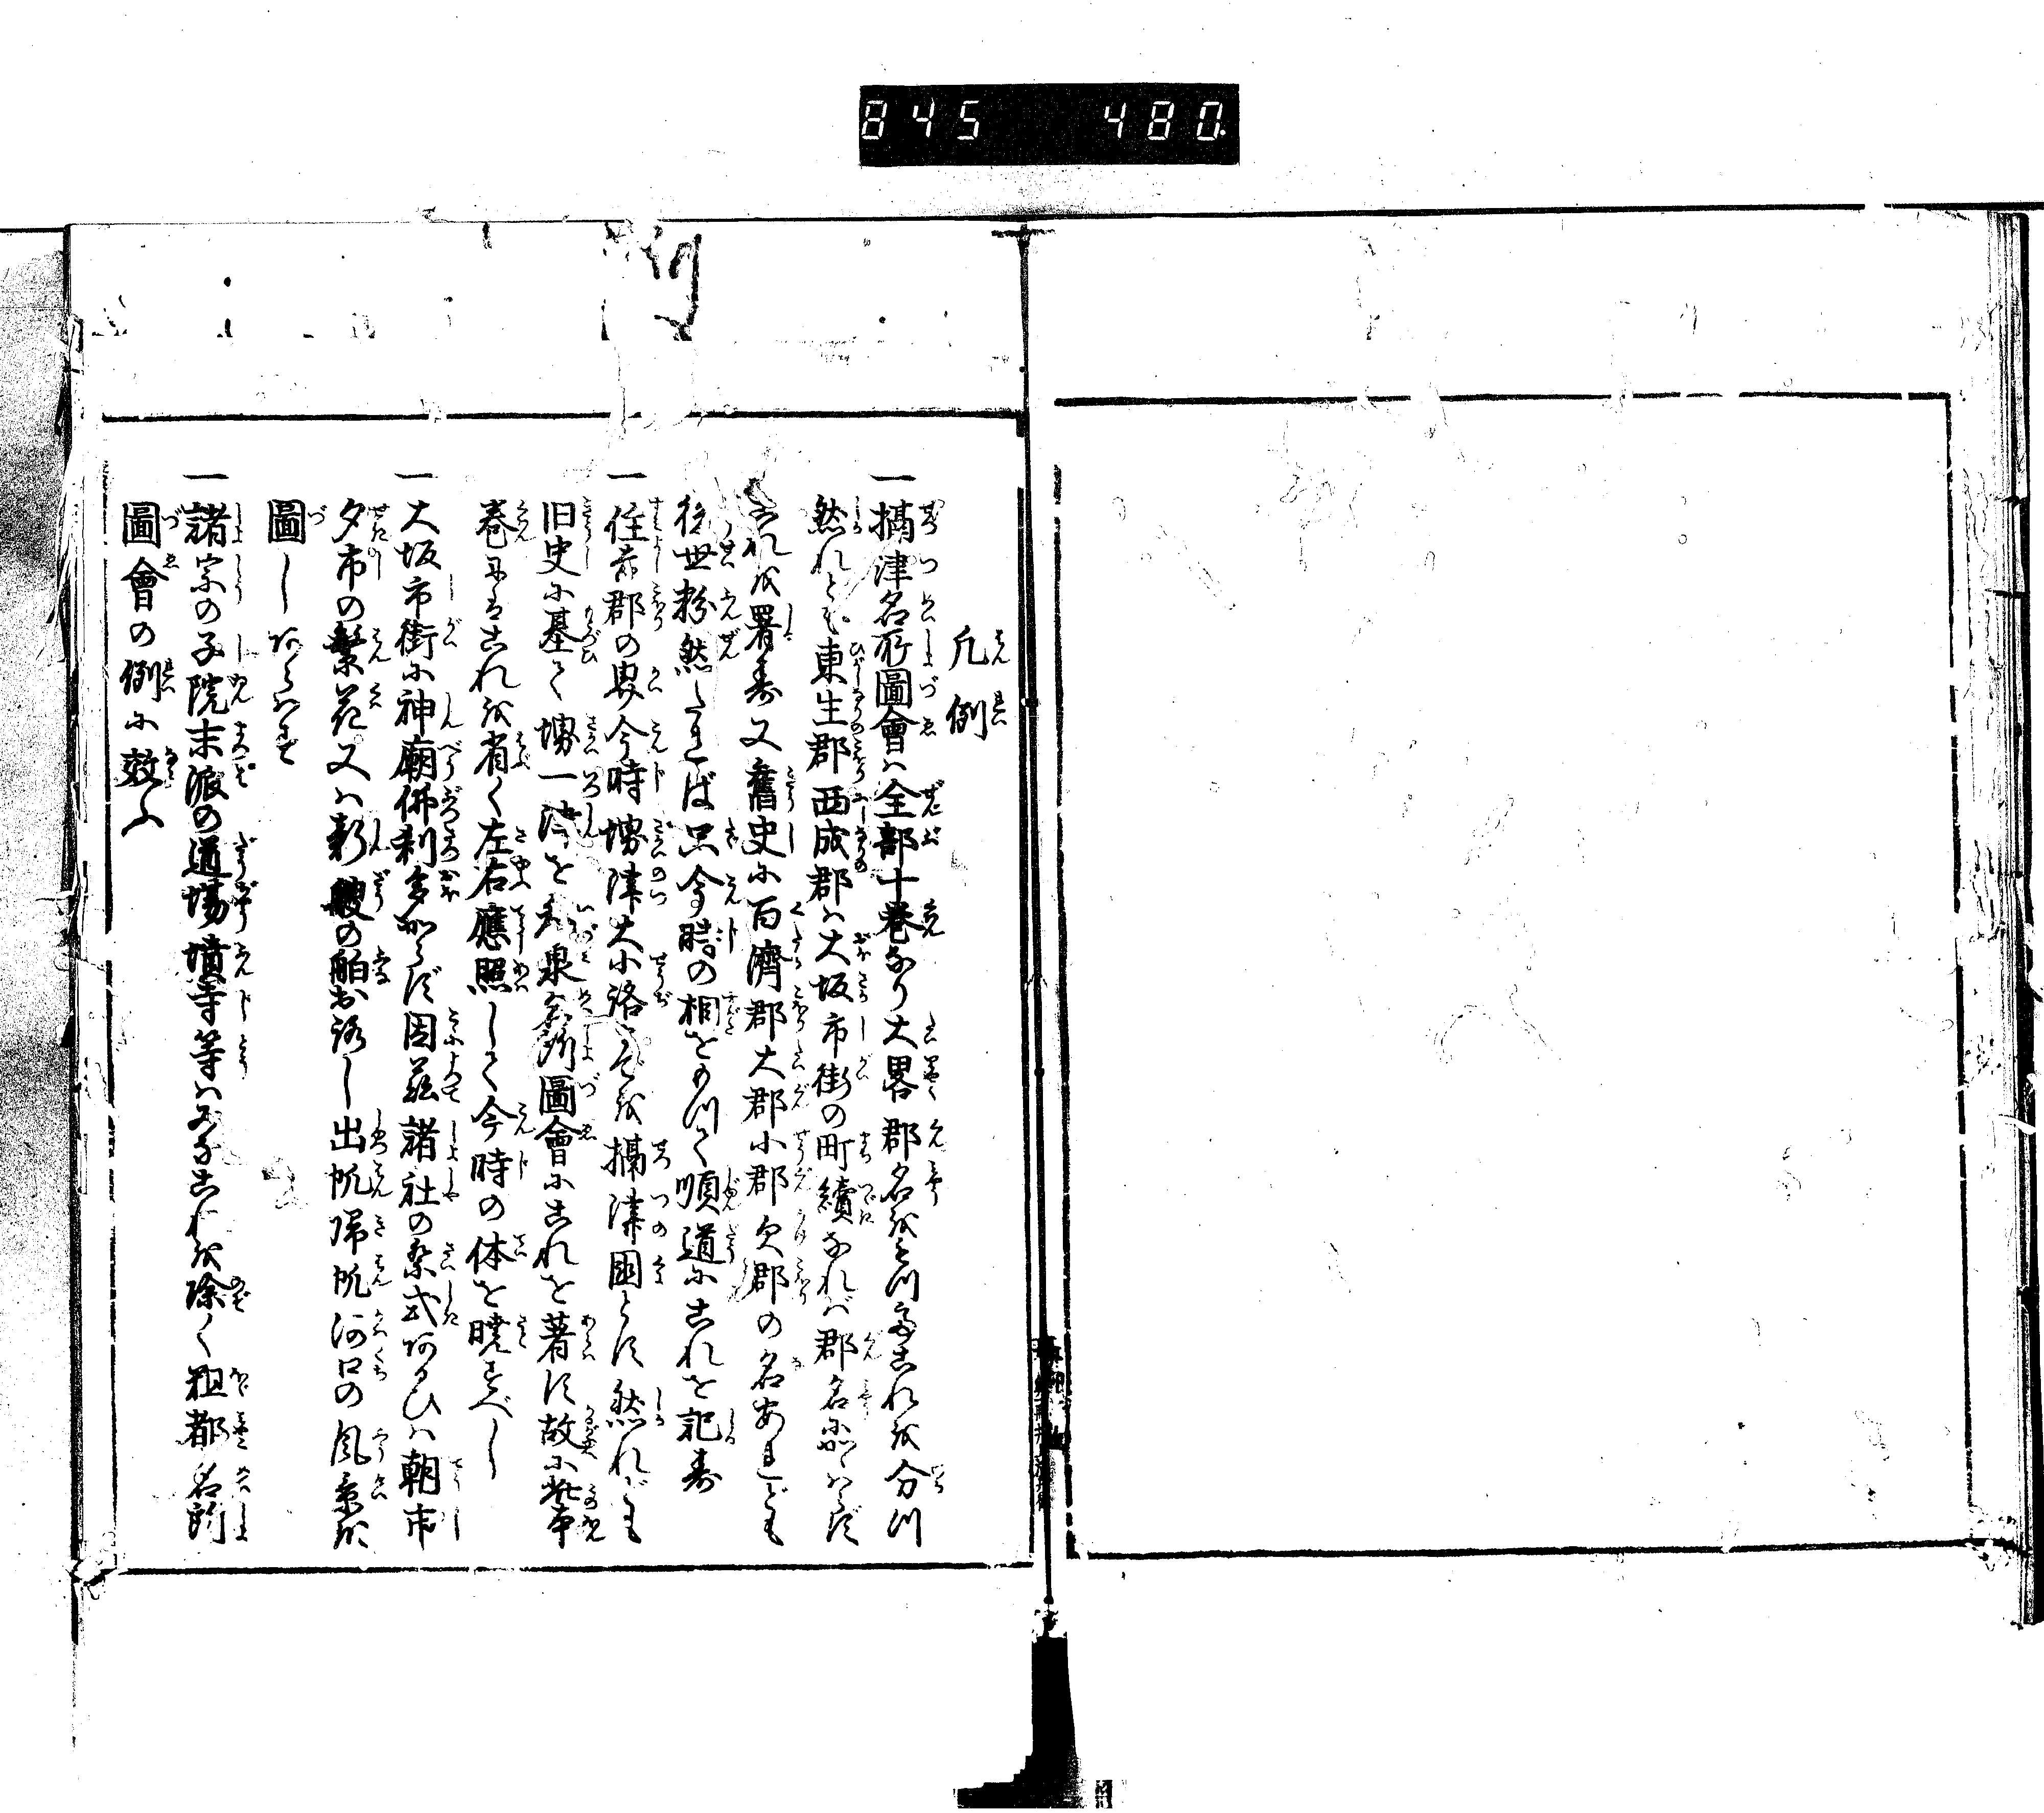 845 480
凡例
一摂津名所圖會ハ全部十巻なり大畧郡名を以てこれを分つ
然れとも東生郡西成郡ハ大坂市街の町續なれバ郡名に
これを署す又舊史に百濟郡大郡小郡欠郡の名あれども
後世粉然たれば只今時の相をもつて順道にこれを記す
一住吉郡の界今時堺津大小路を摂津国とす然れども
旧史に基て堺一津を和泉名所圖會にこれを著す故に此
巻にはこれを省く左右應照して今時の体を暁すべし
一大坂市街に神廟佛刹多からず因茲諸社の祭式あるひハ朝市
夕市の繁花又ハ新艘の舶おろし出帆帰帆河口の風景を
圖しあらハせり
一諸宗の子院末派の道場墳寺等ハみなこれを除く粗都名所
圖會の例に效ふ